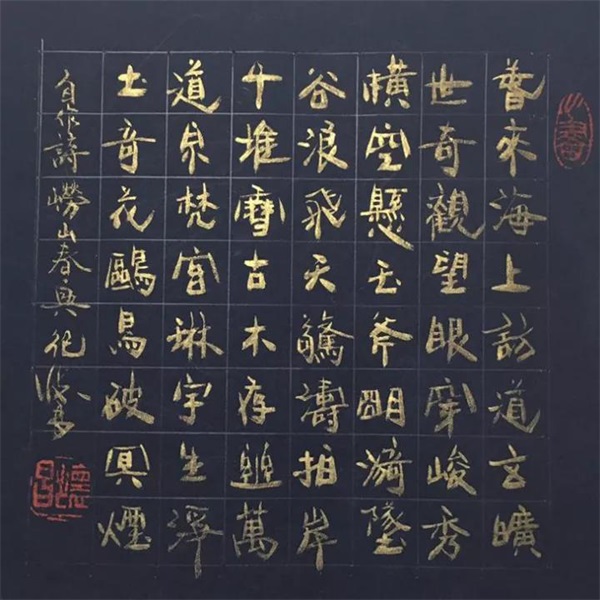 來海上訪道玄曠
世奇觀望眼穿峻秀
橫空懸玉斧明漪墜
谷浪飛天驚濤拍岸
千堆雪古木存萬
道泉梵宮琳宇生淨
土奇花鷗鳥破冥煙
自作詩嶗山春興